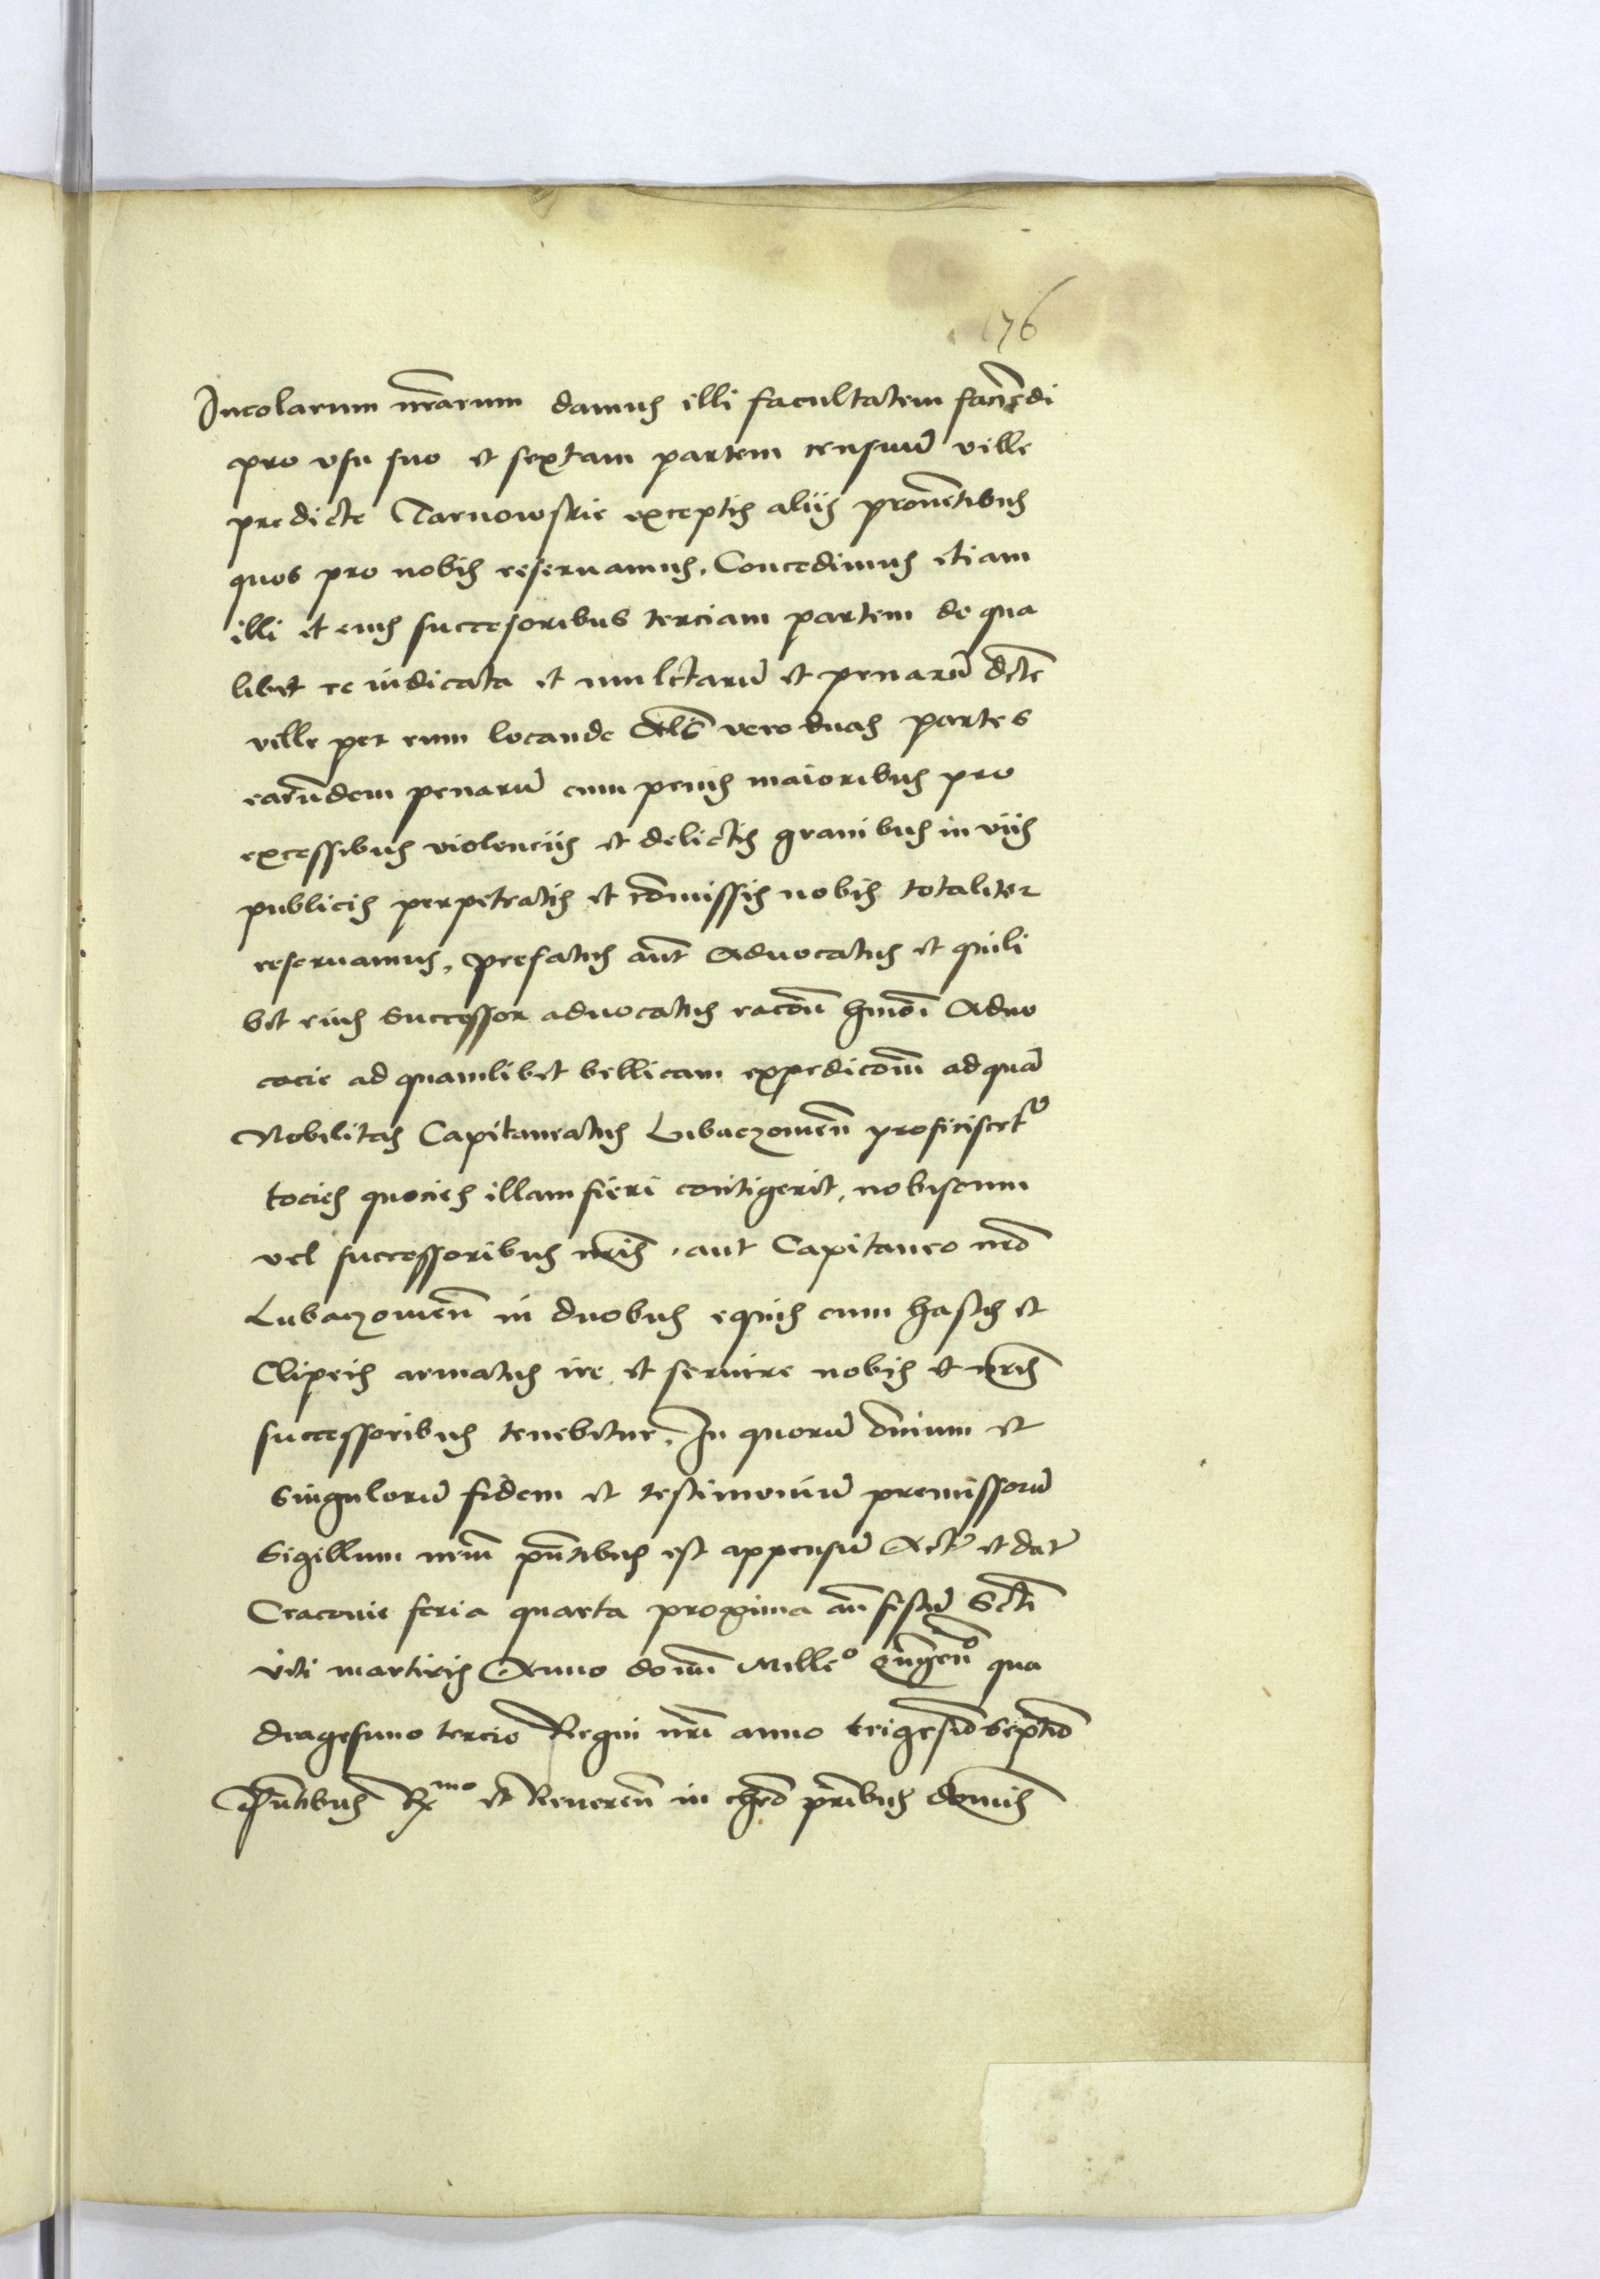 176
Incolarum nr̃arum damus illi facultatem faciẽdi
pro vsu suo et sextam partem censuũ ville
predicte Tarnowskie exceptis aliis prouẽtibus
quos pro nobis reseruamus. Concedimus etiam
illi et eius succesoribus terciam partem de qua
libet re iudicata et mulctarũ et penarũ dcte
ville per eum locande Als̃ vero duas partes
earũdem penarũ cum penis maioribus pro
excessibus violenciis et delictis grauibus in viis
publicis perpetratis et cõmissis nobis totaliter
reseruamus, prefatus aut̃ Aduocatus et quili
bet eius Successor aduocatus racõn hmõi Aduo
cacie ad quamlibet bellicam expedicõm ad quã
Nobilitas Capitaneatus Lubaczouien̄ proficiscet̃
tocies quocies illam fieri contigerit, nobiscum
vel successoribus nr̃is, aut Capitaneo nr̃o
Lubaczouien̄ in duobus equis cum hastis et
Clipeis armatus ire et seruire nobis et nr̃is
successoribus tenebitur. In quorũ oĩnium et
singulorũ fidem et testimoniũ premissorũ
Sigillum nrm̃ pñtibus est appensũ Actũ et datũ
Cracouie feria quarta proxima añ festũ Scti
viti martiris Anno domĩ Mille° Qñgen̄° qua
dragesimo tercio Regni nr̃i anno trigesĩo septĩo
Pñtibus Rx^mo et Reueren̄ in chrõ pr̃ibus domĩs